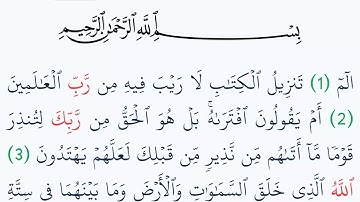 بِسْمِ اللَّهِ الرَّحْمَٰنِ الرَّحِيمِ
الٓمٓ (1) تَنزِيلُ الْكِتَابِ لَا رَيْبَ فِيهِ مِن رَّبِّ الْعَالَمِينَ
(2) أَمْ يَقُولُونَ افْتَرَاهُ ۚ بَلْ هُوَ الْحَقُّ مِن رَّبِّكَ لِتُنذِرَ
قَوْمًا مَّا أَتَاهُم مِّن نَّذِيرٍ مِّن قَبْلِكَ لَعَلَّهُمْ يَهْتَدُونَ (3)
اللَّهُ الَّذِي خَلَقَ السَّمَاوَاتِ وَالْأَرْضَ وَمَا بَيْنَهُمَا فِي سِتَّةِ